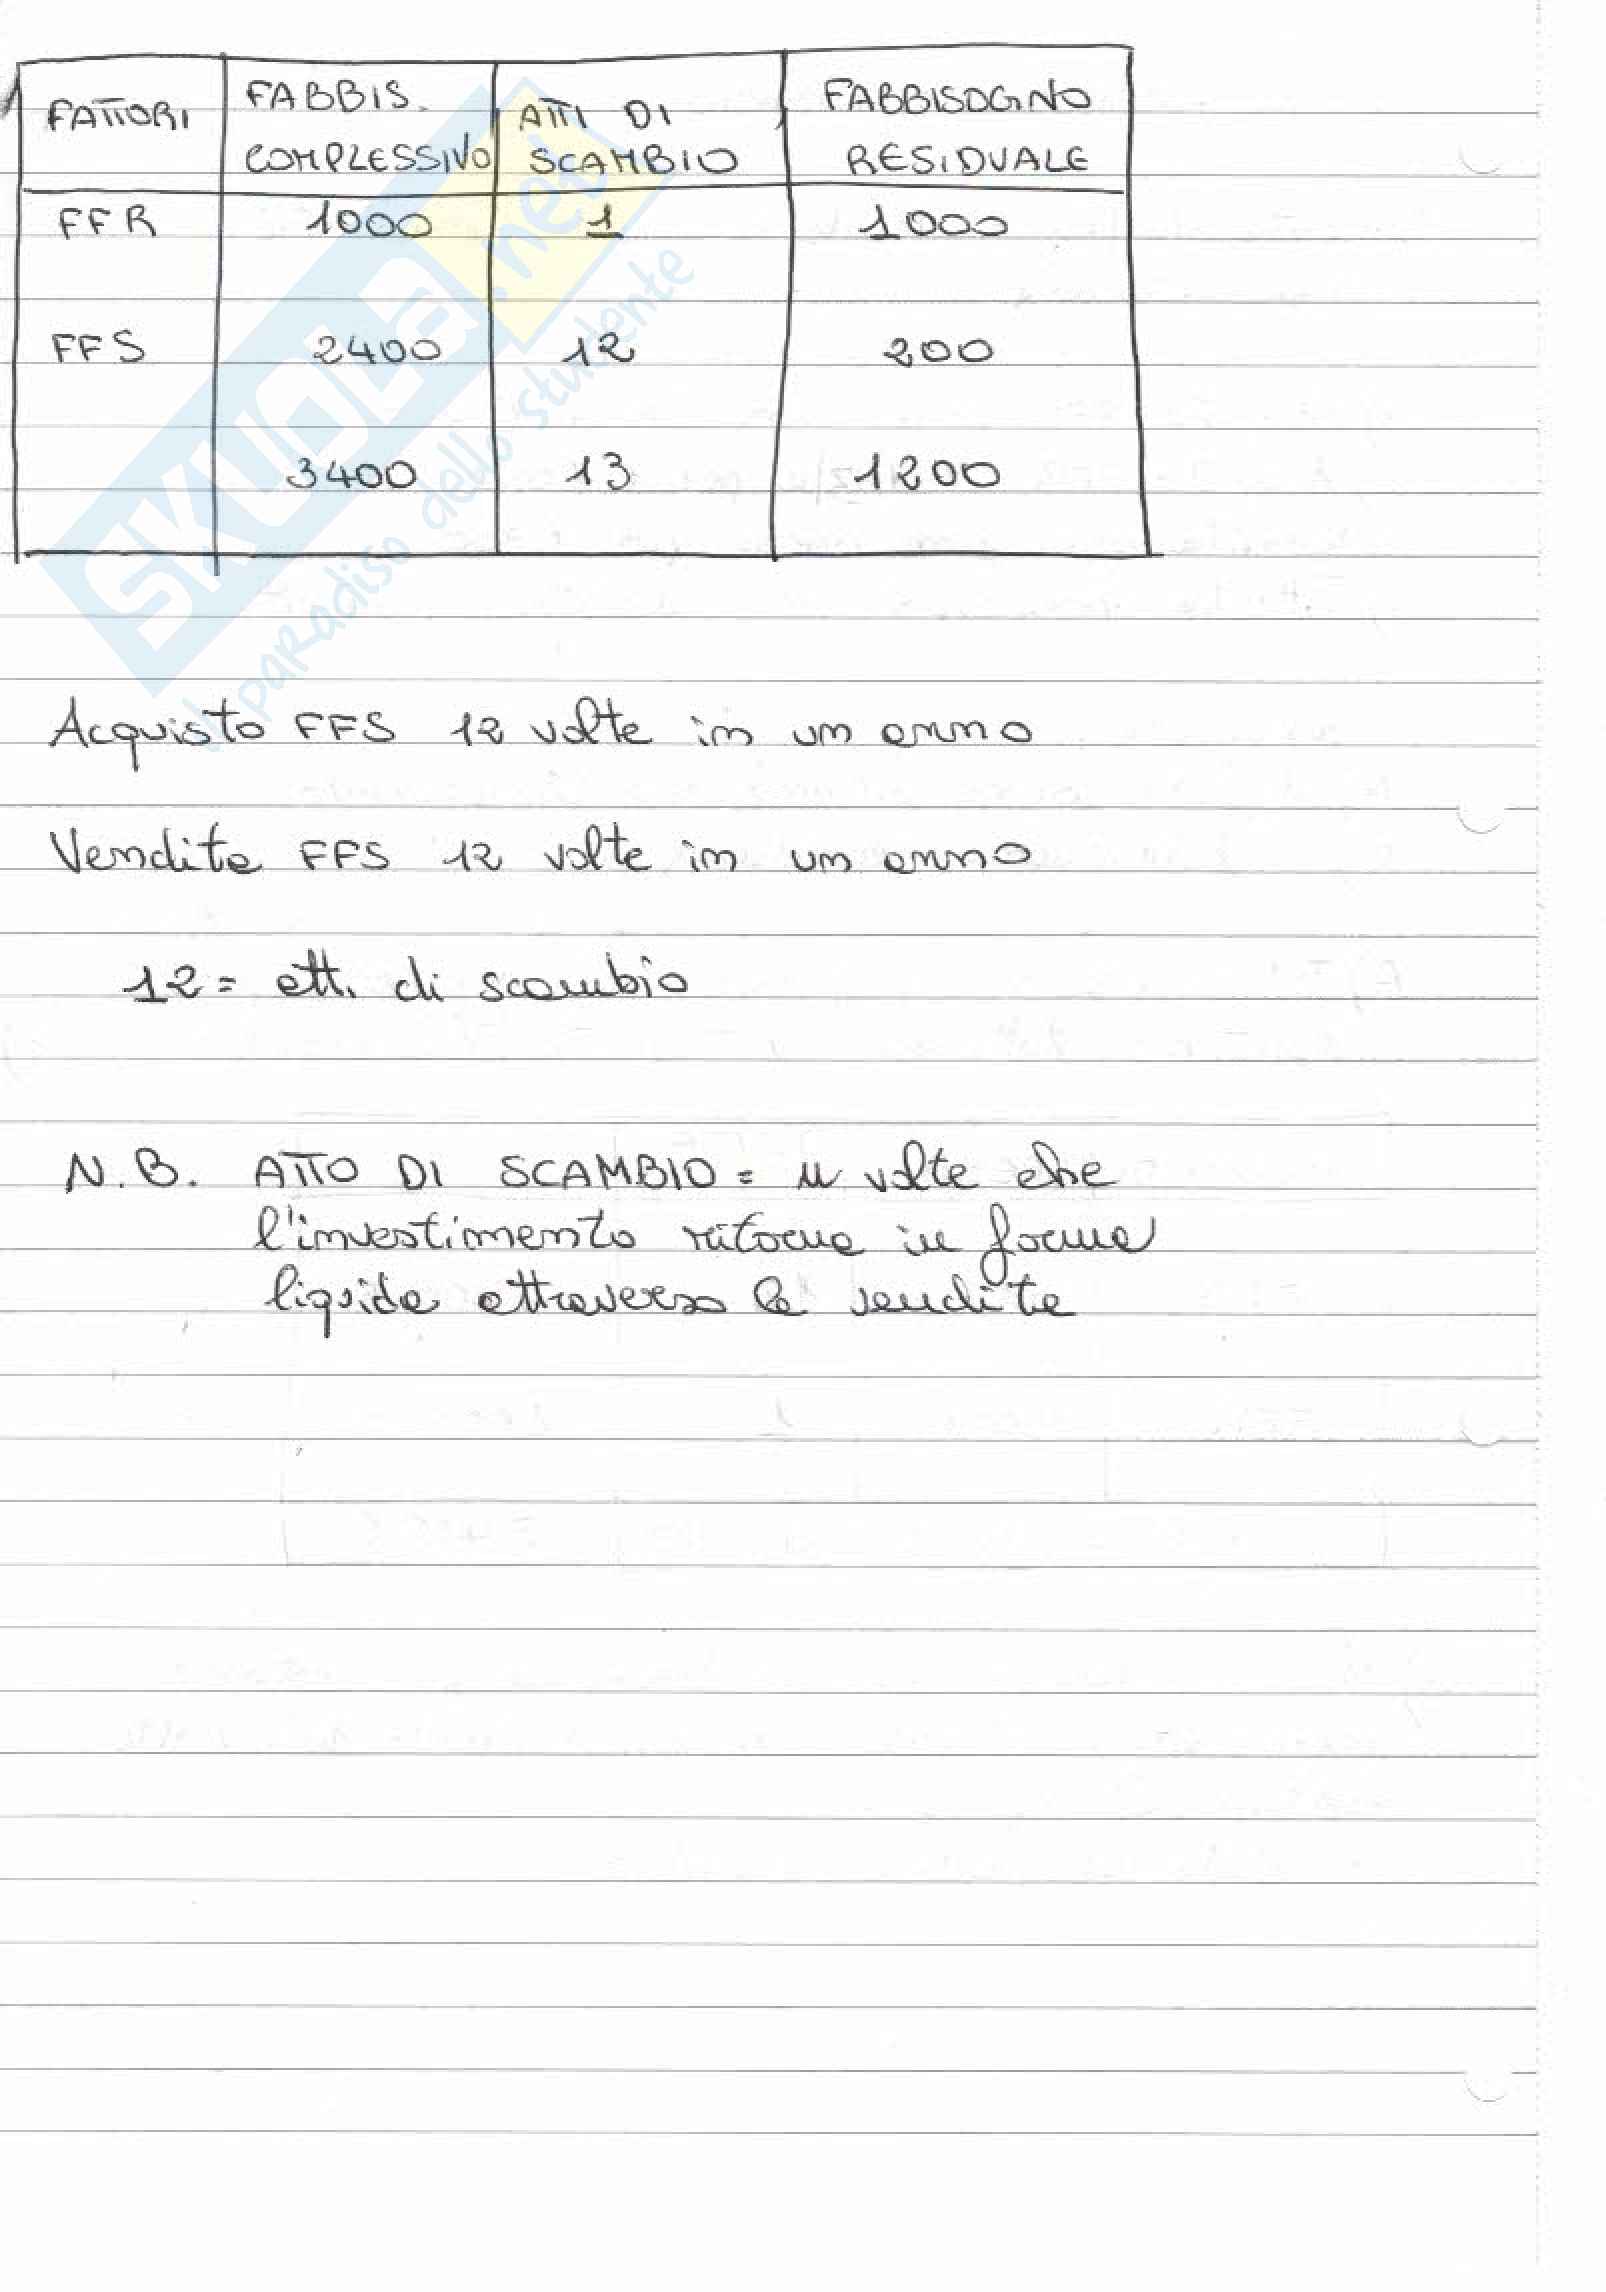 FATTORI FABBIS. COMPLESSIVO ATTI DI SCAMBIO FABBISOGNO RESIDUALE
FFR 1000 1 1000
FFS 2400 12 200
3400 13 1200
Acquisto FFS 12 volte in un anno
Vendita FFS 12 volte in un anno
12 = att. di scambio
N.B. ATTO DI SCAMBIO = n volte che
l'investimento ritorna in forma
liquida attraverso le vendite
SKUOLA.net
il paradiso dello studente